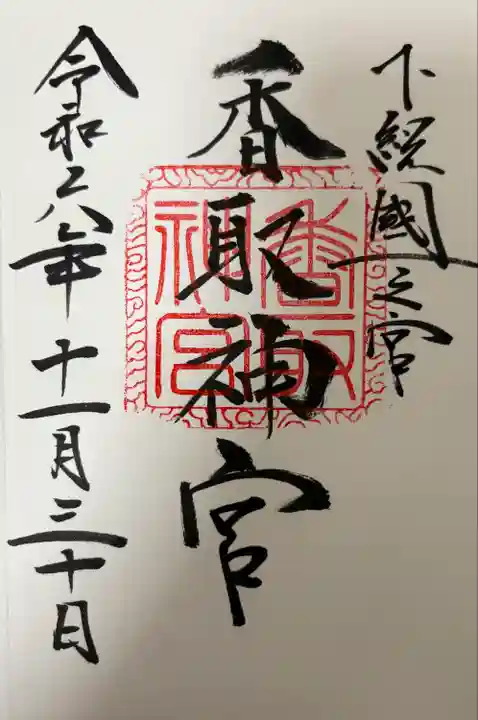 下総國一之宮
香取神宮
令和六年十一月三十日
香取
神宮